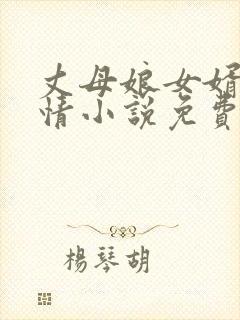 丈母娘女婿
情小說免費
楊琴胡